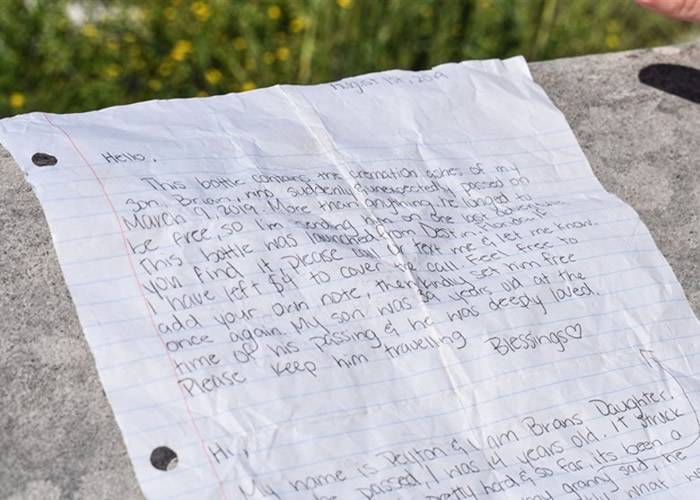 August 1st, 2019
Hello,
This bottle contains the cremation ashes of my
son, Brian, who suddenly & unexpectedly passed on
March 9, 2019. More than anything, he longed to
be free, so I'm sending him on one last adventure.
This bottle was launched from Destin, Florida. If
you find it please call or text me & let me know.
I have left $4 to cover the call. Feel free to
add your own note, then kindly set him free
once again. My son was 39 years old at the
time of his passing & he was deeply loved.
Please keep him travelling
Blessings♡
Hi,
My name is Peyton & I am Brans Daughter.
he passed, I was 14 years old. It struck
pretty hard & so far, its been a
granny said, he
what